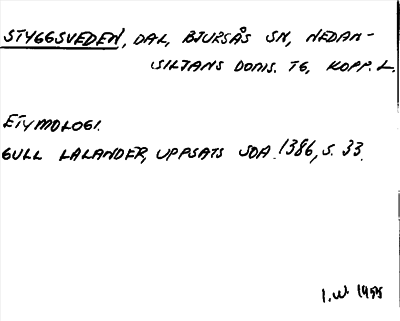 STYGGSVEDEN, DAL, BJURSÅS SN, NEDAN-
SILJANS DOMS. TG, KOPP. L.
ETYMOLOGI.
GULL LALANDER, UPPSATS SOA 1386, S. 33.